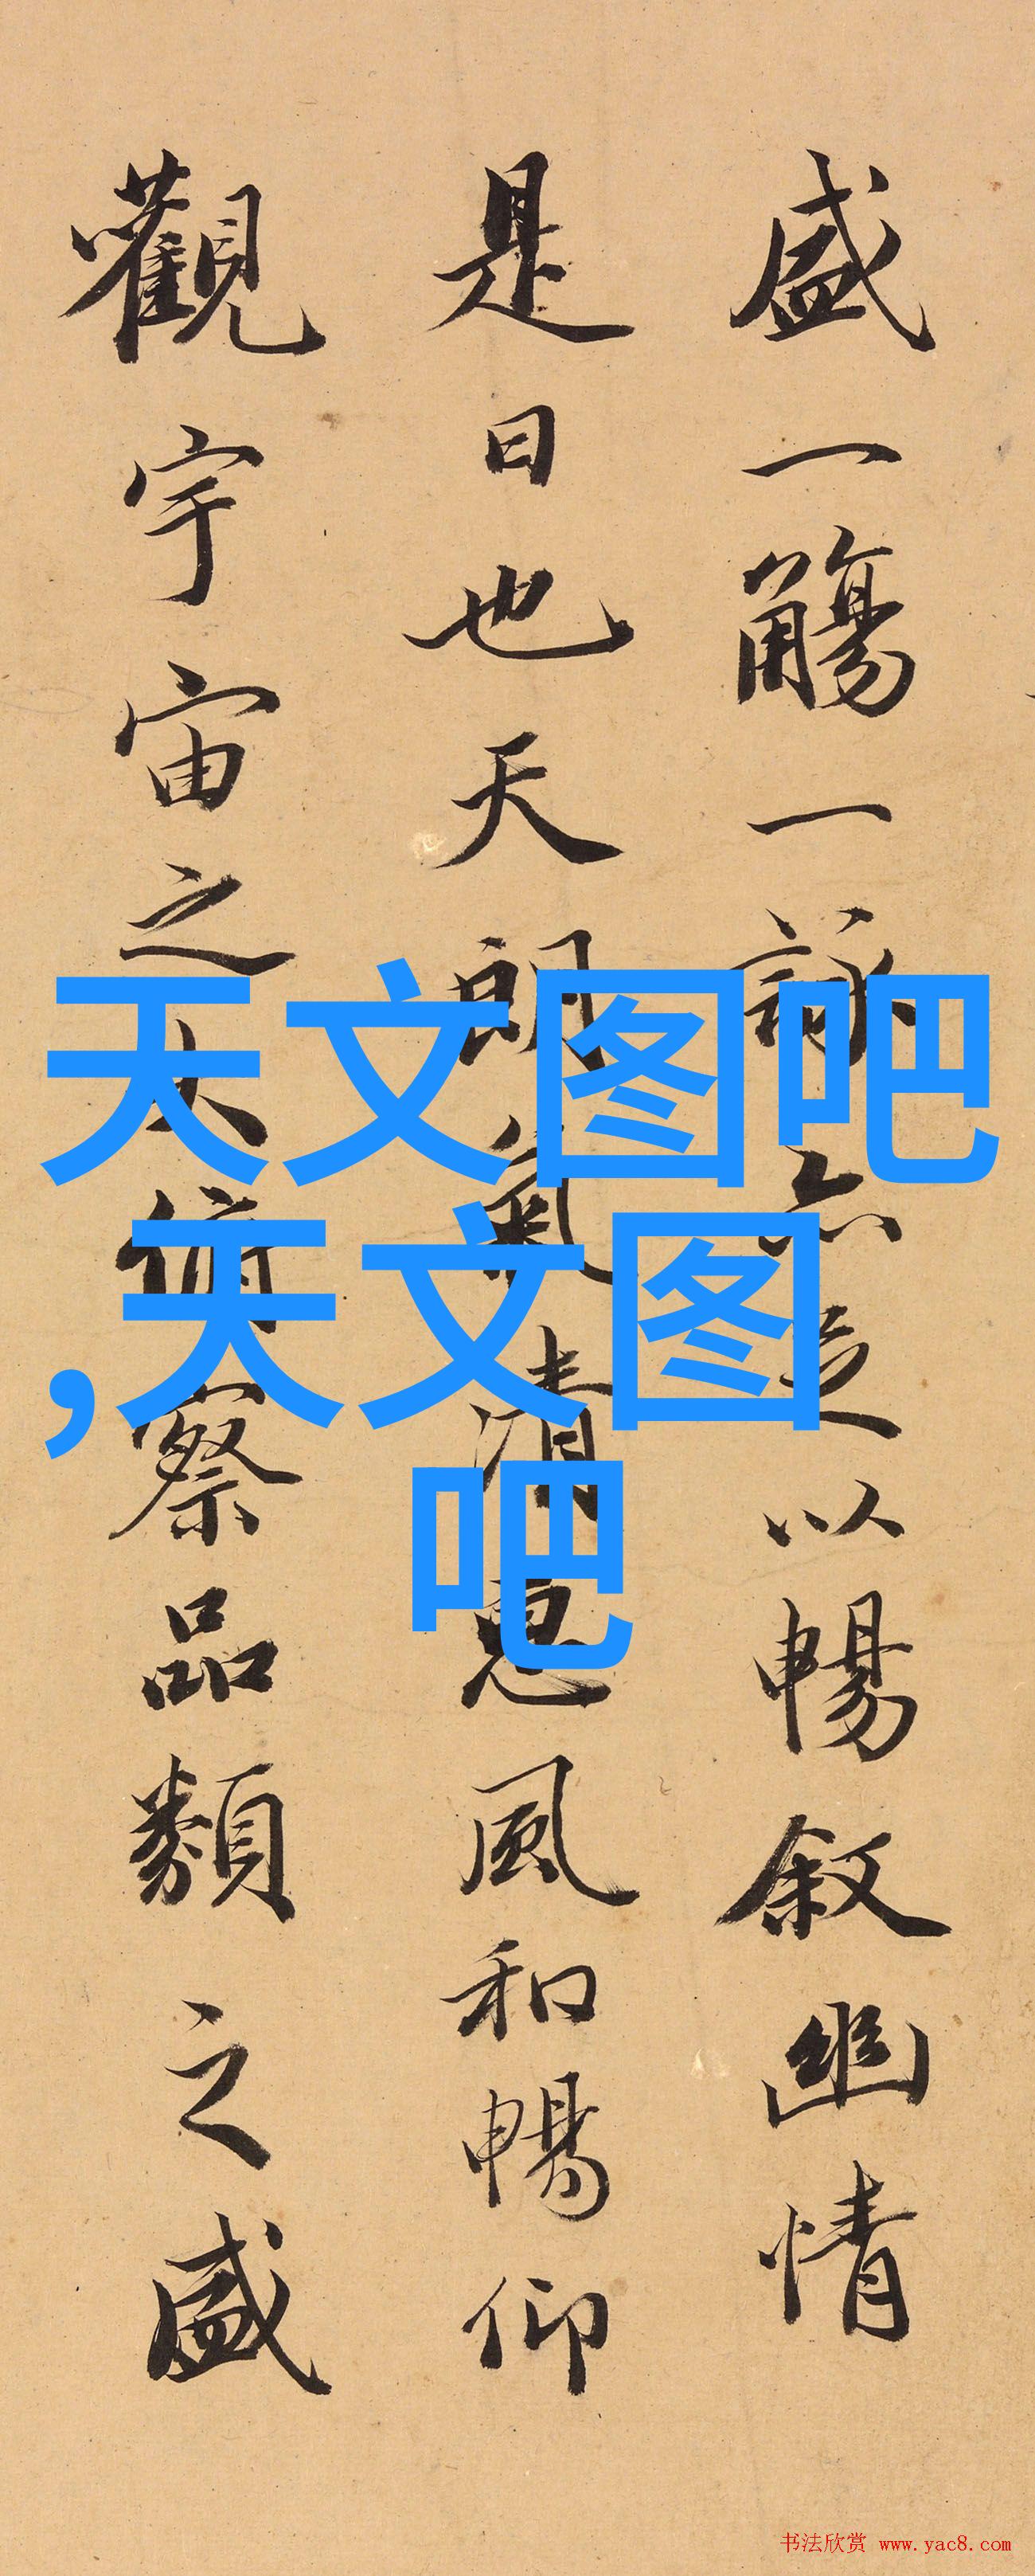 盛一觴一詠亦足以暢叙幽情
是日也天朗氣清惠風和暢仰
觀宇宙之大俯察品類之盛
天文图吧
,天文图
吧
书法欣赏 www.yac8.com